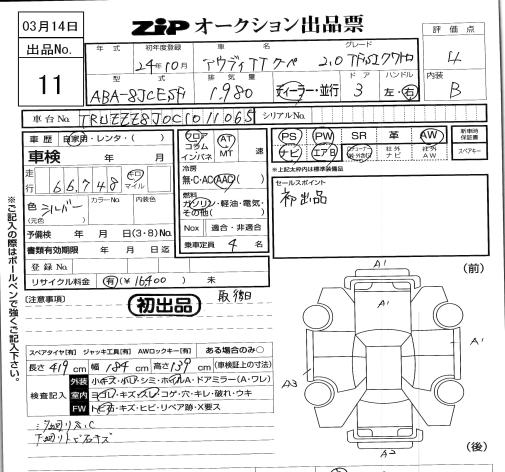 03月14日
ZiP オークション出品票
出品No. 11
年式 初年度登録 車名 グレード
24年10月 アウディTTクーペ 2.0 TFSIクワトロ
評価点 4
型式 排気量 ドア ハンドル
ABA-8JCESF 1,980 ディーラー・並行 3 左・右
内装 B
車台No. TRUZZZ8J0C1011065 シリアルNo.
車歴 自家用・レンタ・( )
車検 年 月
走行 66,748 キロ マイル
色(元色) シルバー カラーNo. 内装色
予備検 年 月 日(3・8)No.
書類有効期限 年 月 日迄
登録No.
リサイクル料金 有(¥16400) 未
フロア コラム インパネ AT MT 速
冷房 無・C・AC(AAC)
燃料 ガソリン・軽油・電気・その他( )
Nox 適合・非適合
乗車定員 4 名
PS PW SR 革 AW
ナビ エアB 社外ナビ 社外AW
新車時保証書 スペアキー
※上記太枠内は標準装備品
セールスポイント
初出品
※ご記入の際はボールペンで強くご記入下さい。
注意事項
初出品
スペアタイヤ[有] ジャッキ工具[有] AWロックキー[有] ある場合のみ○
長さ 419 cm 幅 184 cm 高さ 139 cm (車検証上の寸法)
検査記入
外装 小キズ・小U・シミ・ホイルA・ドアミラー(A・ワレ)
室内 ヨゴレ・キズ・スレ・コゲ・穴・キレ・破れ・ウキ
FW トビ石・キズ・ヒビ・リペア跡・X要ス
下廻りトビ石キズ
(前)
A1
A1
A1
A3
A2
(後)